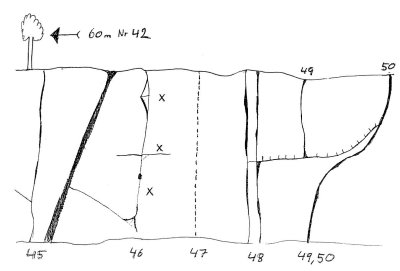 60m Nr 42
49
50
X
X
X
45
46
47
48
49,50